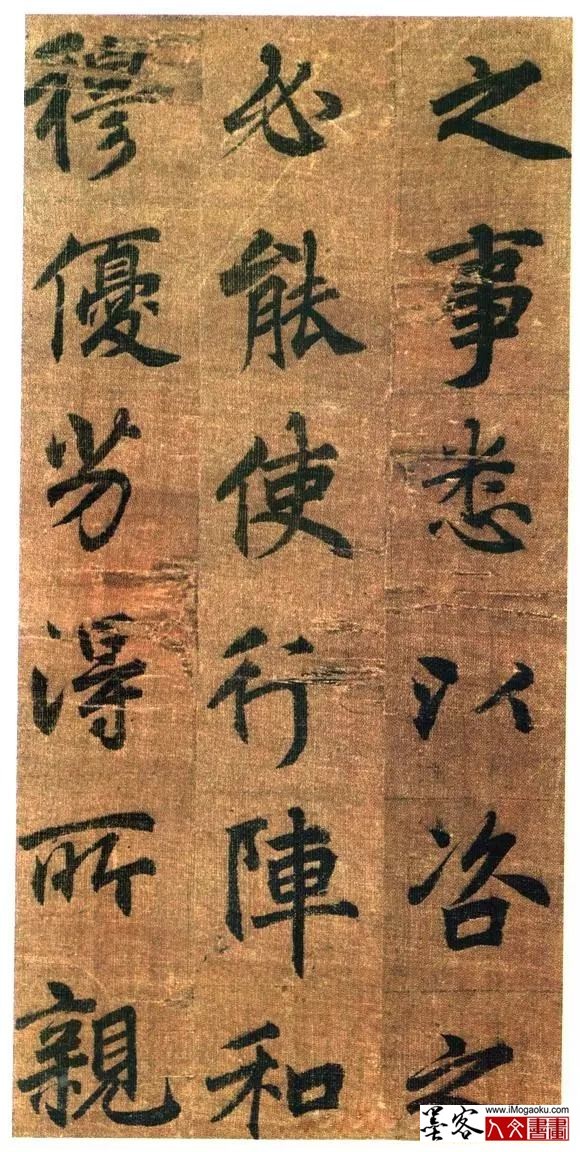 之事悉以咨之
必能使行陣和
穆優劣得所親
www.iMogaoku.com
墨客
人文書畫